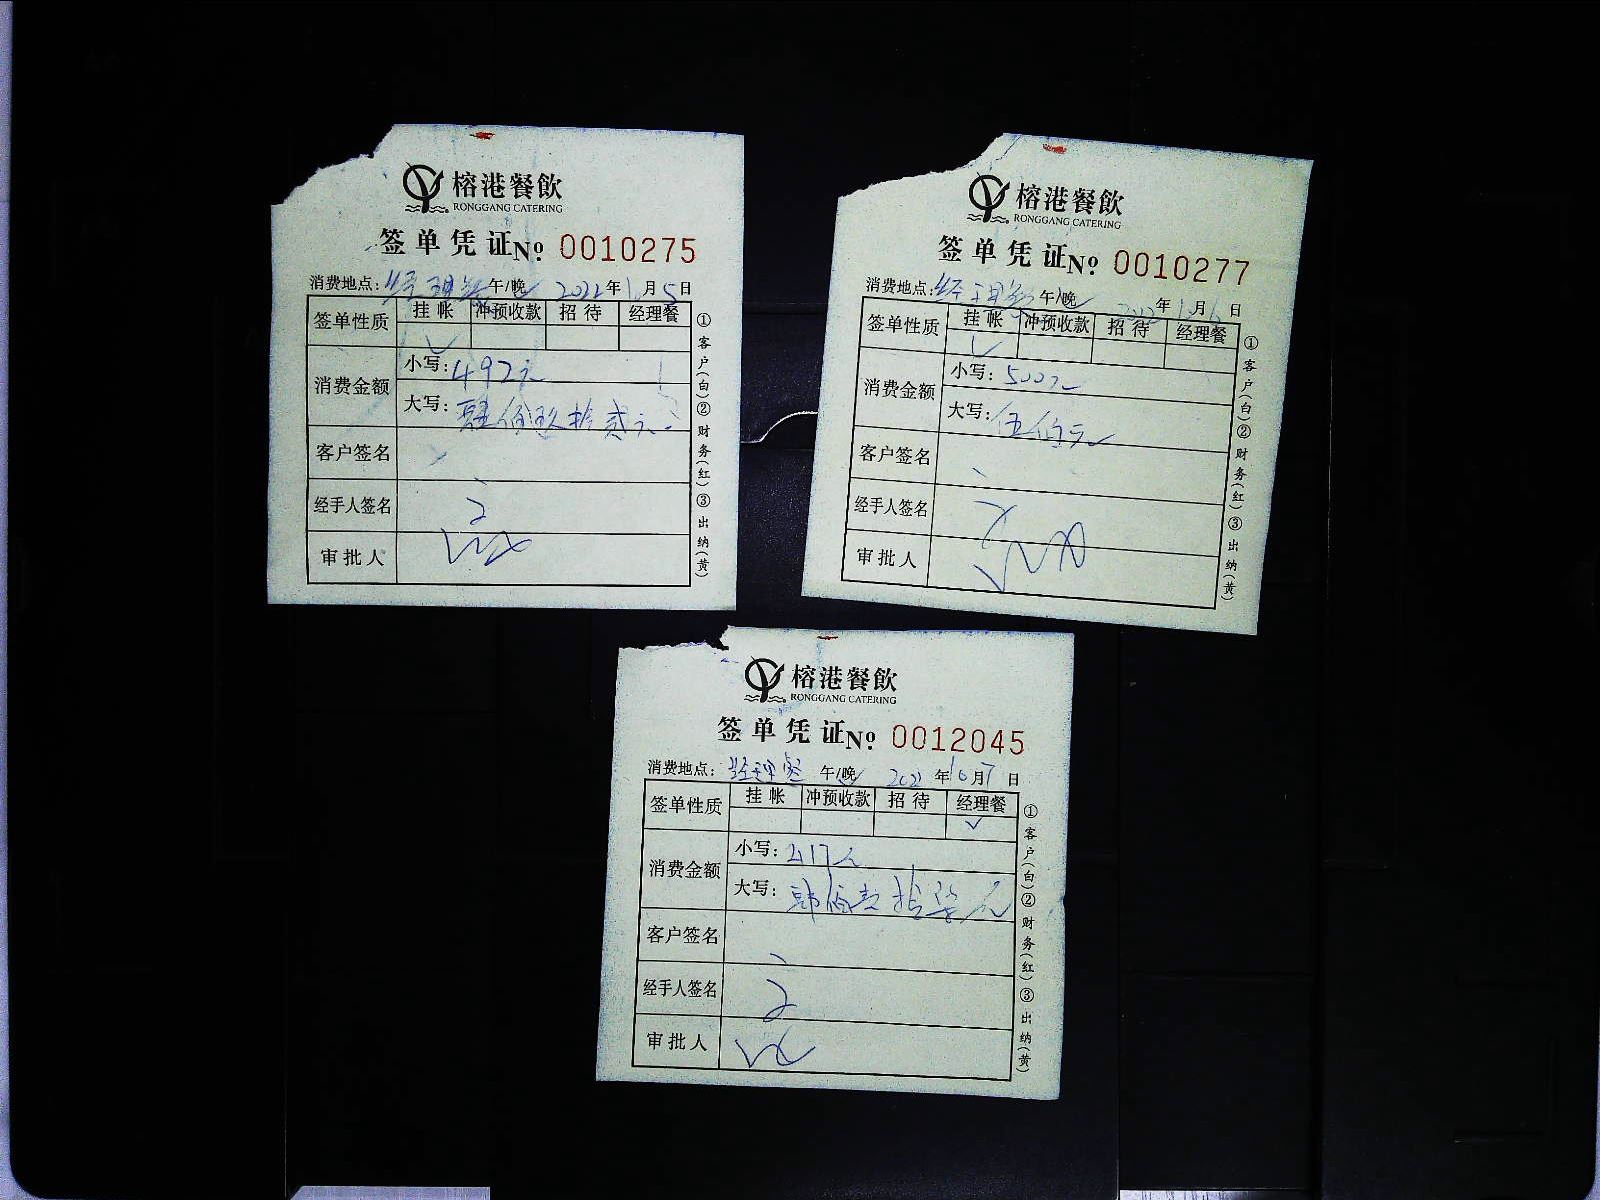 榕港餐飲
RONGGANG CATERING
签单凭证 № 0010275
消费地点: 经理餐 午/晚 2022年1月5日
签单性质 挂帐 冲预收款 招待 经理餐
✓
消费金额 小写: 492元
大写: 肆佰玖拾贰元
客户签名
经手人签名
审批人
①客户(白)②财务(红)③出纳(黄)
榕港餐飲
RONGGANG CATERING
签单凭证 № 0010277
消费地点: 经理餐 午/晚 2022年1月6日
签单性质 挂帐 冲预收款 招待 经理餐
✓
消费金额 小写: 500元
大写: 伍佰元
客户签名
经手人签名
审批人
①客户(白)②财务(红)③出纳(黄)
榕港餐飲
RONGGANG CATERING
签单凭证 № 0012045
消费地点: 经理餐 午/晚 年10月7日
签单性质 挂帐 冲预收款 招待 经理餐
✓
消费金额 小写:
大写: 拾柒元
客户签名
经手人签名
审批人
①客户(白)②财务(红)③出纳(黄)